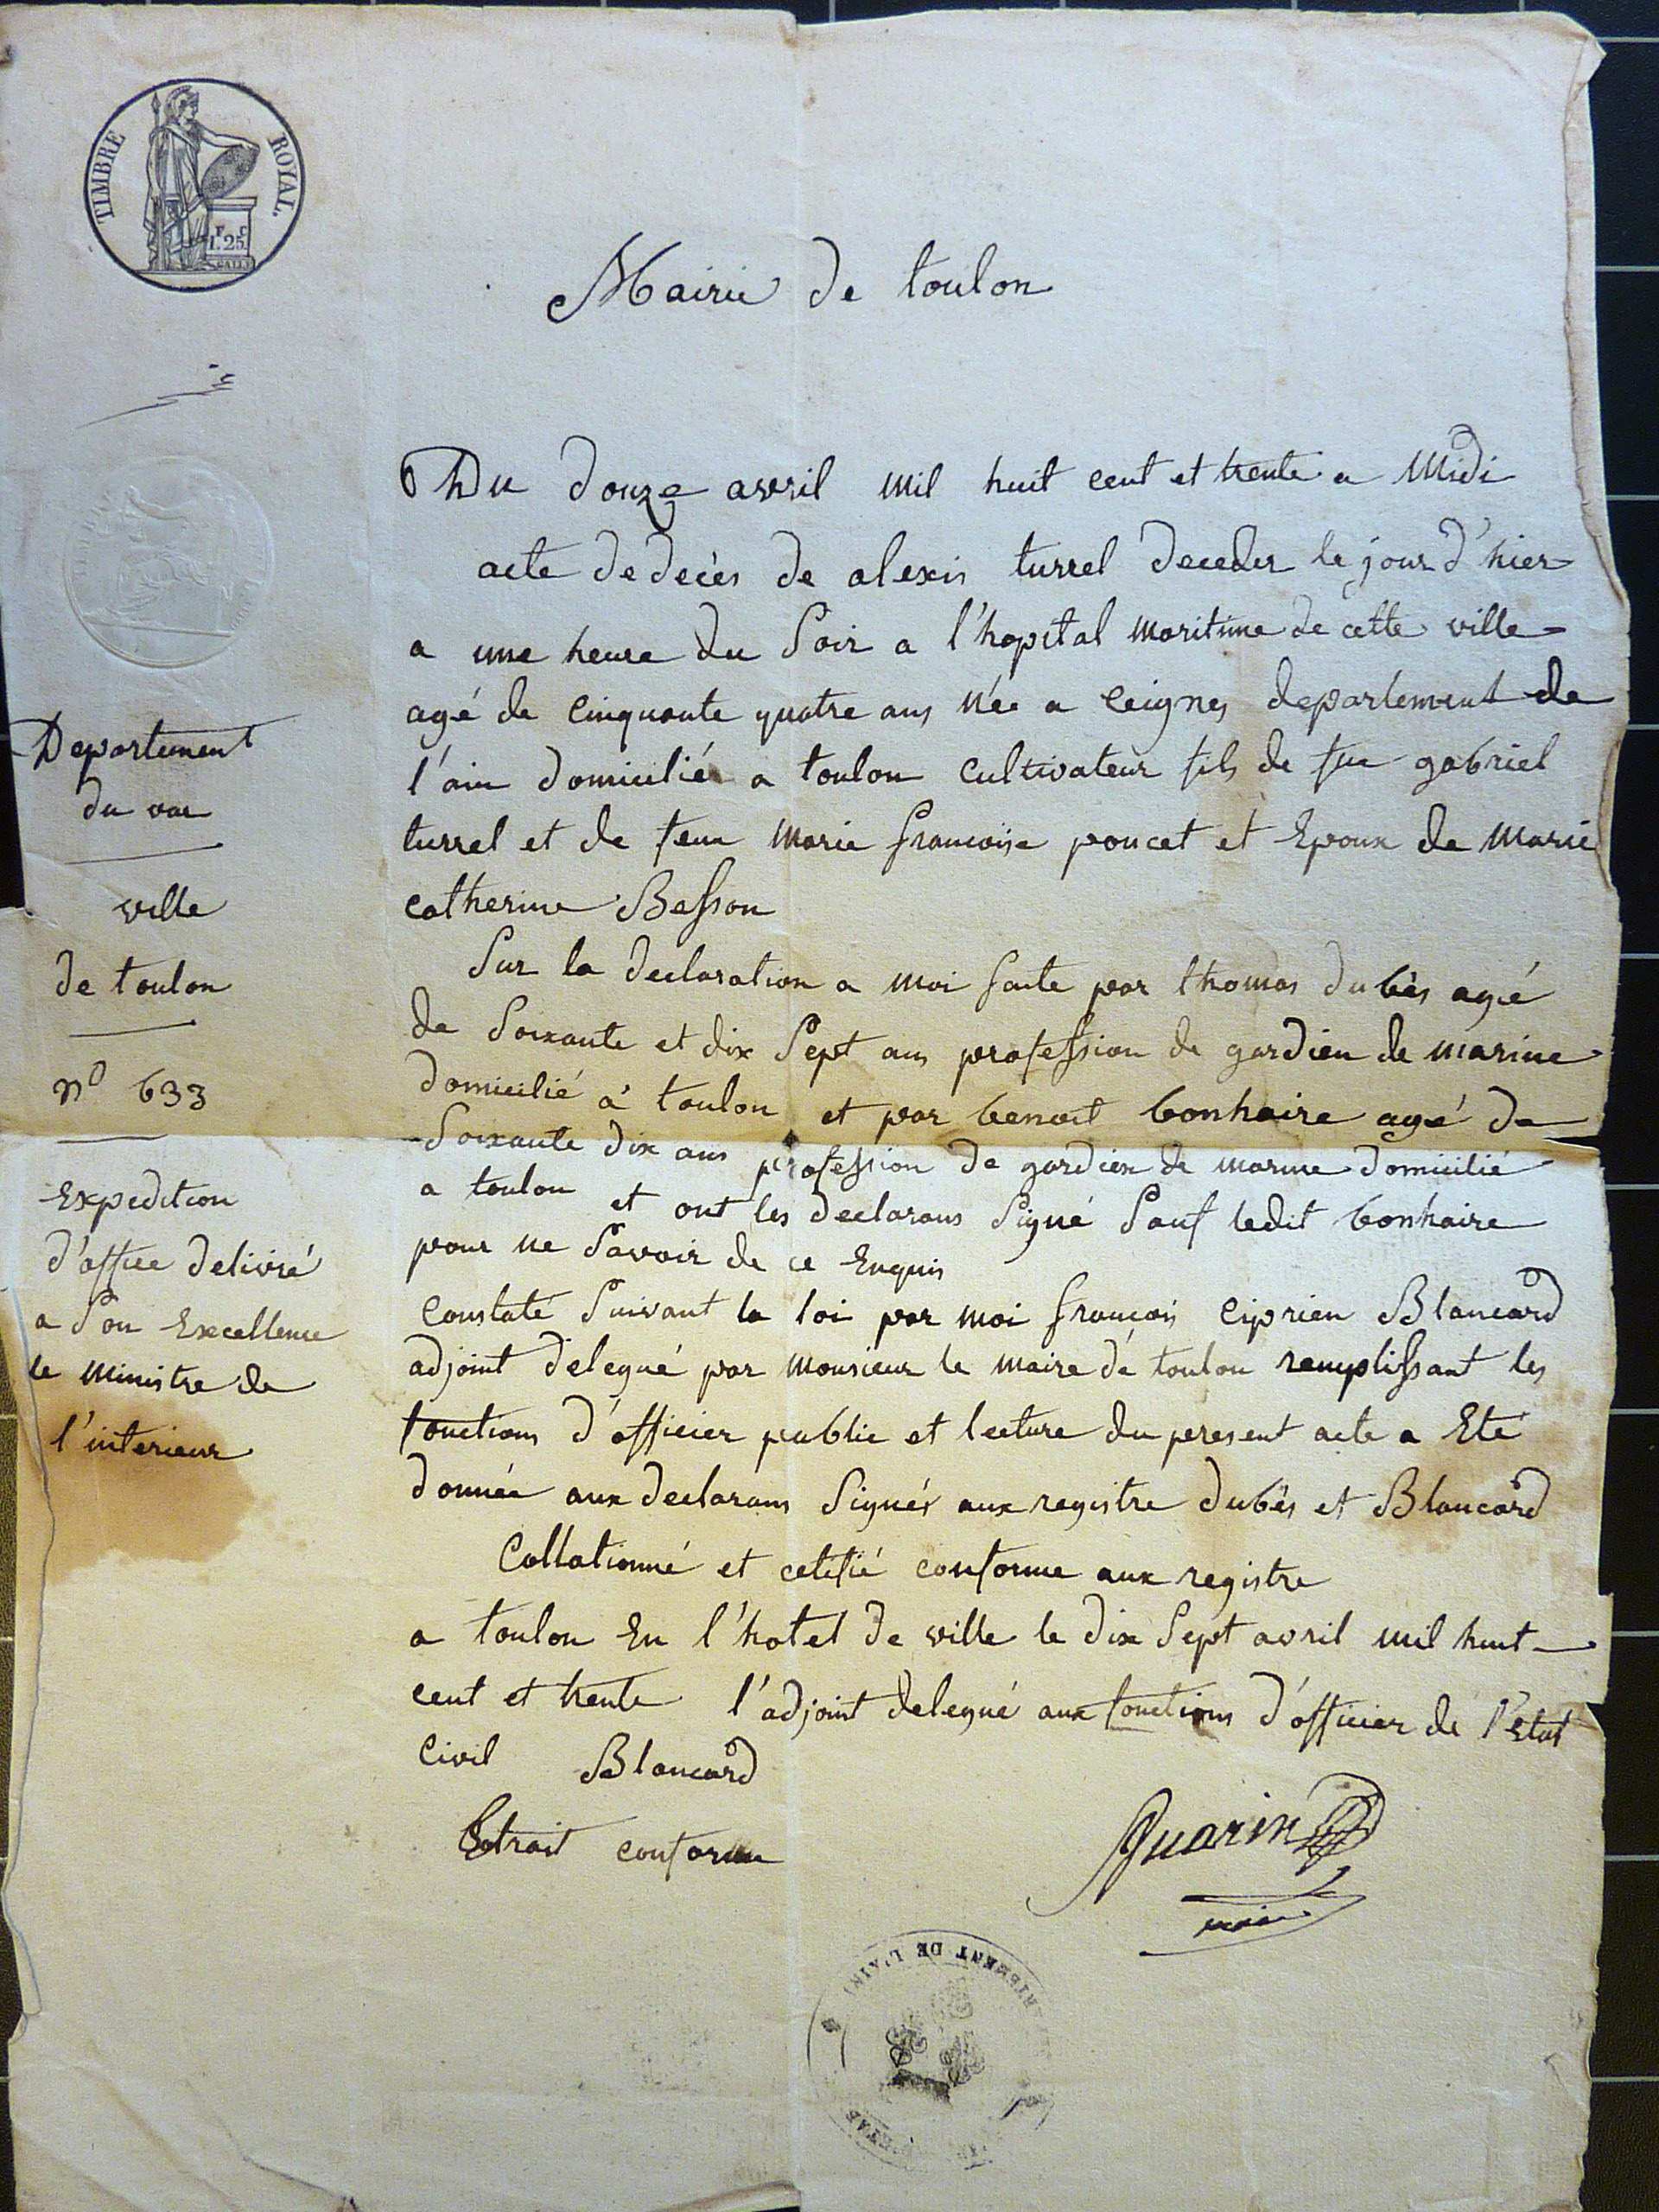 TIMBRE ROYAL.
1.F 25.C
Mairie de toulon
Du douze avril mil huit cent et trente a midi
acte de decès de alexis turrel deceder le jour d'hier
a une heure du Soir a l'hopital maritime de cette ville
agé de cinquante quatre ans née a Ceignes departement de
l'ain domicilié a toulon cultivateur fils de feu gabriel
turrel et de feue marie francoise poncet et Epoux de marie
catherine Besson
Sur la declaration a moi faite par thomas dubès agé
de Soixante et dix Sept ans profession de gardien de marine
domicilié à toulon et par benoit bonhaire agé de
Soixante dix ans profession de gardien de marine domicilié
a toulon et ont les declarans Signé Sauf ledit bonhaire
pour ne Savoir de ce Enquis
Constaté Suivant la loi par moi françois Ciprien Blancard
adjoint delegué par monsieur le maire de toulon remplissant les
fonctions d'officier public et lecture du present acte a Eté
donnée aux declarans Signés aux registre dubès et Blancard
Collationné et cetifié conforme aux registre
a toulon En l'hotel de ville le dix Sept avril mil huit
cent et trente l'adjoint delegué aux fonctions d'officier de l'Etat
Civil Blancard
Extrait conforme
Guarin
maire
Departement
du var
ville
de toulon
nº 633
Expedition
d'office delivré
a Son Excellence
le Ministre de
l'interieur
DE L'AIN